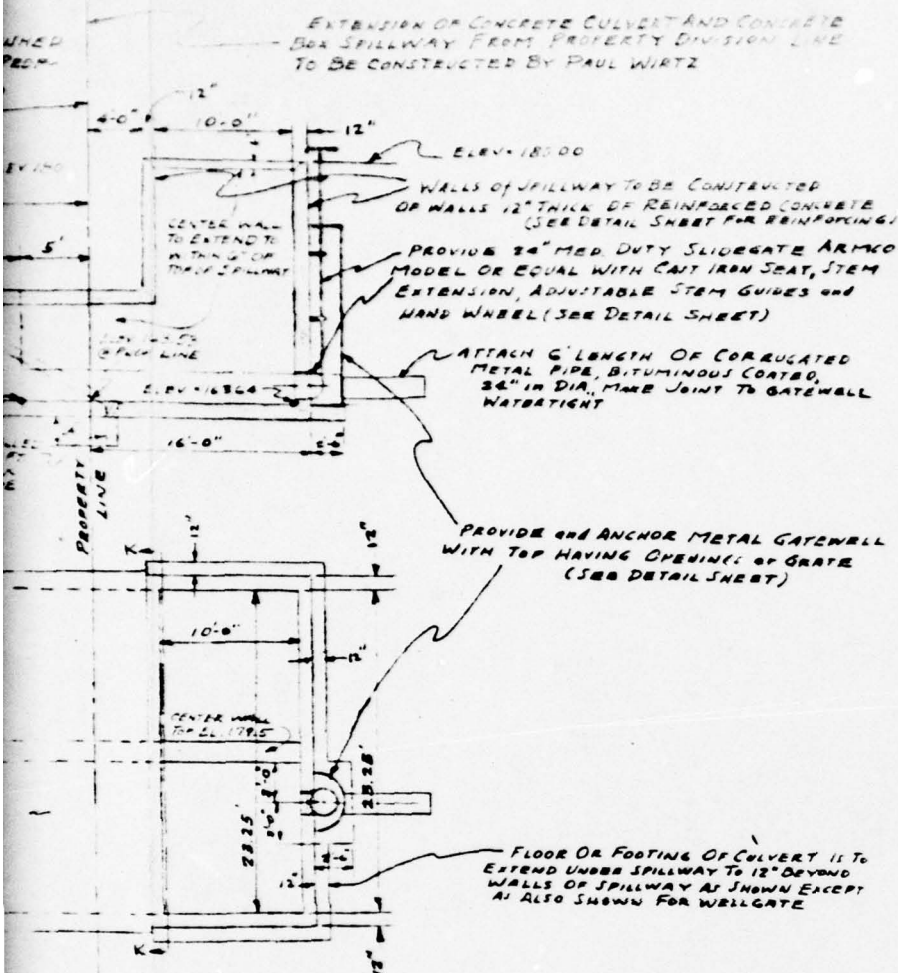 EXTENSION OF CONCRETE CULVERT AND CONCRETE
BOX SPILLWAY FROM PROPERTY DIVISION LINE
TO BE CONSTRUCTED BY PAUL WIRTZ
12"
4'-0"
10'-0"
12"
WALLS of SPILLWAY TO BE CONSTRUCTED
OF WALLS 12" THICK OF REINFORCED CONCRETE
(SEE DETAIL SHEET FOR REINFORCING)
CENTER WALL
TO EXTEND TO
WITHIN 6" OF
TOP OF SPILLWAY
5'
PROVIDE 24" MED. DUTY SLIDEGATE ARMCO
MODEL OR EQUAL WITH CAST IRON SEAT, STEM
EXTENSION, ADJUSTABLE STEM GUIDES and
HAND WHEEL (SEE DETAIL SHEET)
LINE
ATTACH 6' LENGTH OF CORRUGATED
METAL PIPE, BITUMINOUS COATED,
24" IN DIA, MAKE JOINT TO GATEWELL
WATERTIGHT
16'-0"
PROPERTY
LINE
PROVIDE and ANCHOR METAL GATEWELL
WITH TOP HAVING OPENINGS or GRATE
(SEE DETAIL SHEET)
K
12"
12"
10'-0"
12"
CENTER WALL
TOP EL. 179.5
23.25'
12"
FLOOR OR FOOTING OF CULVERT IS TO
EXTEND UNDER SPILLWAY TO 12" BEYOND
WALLS OF SPILLWAY AS SHOWN EXCEPT
AS ALSO SHOWN FOR WELLGATE
K
12"